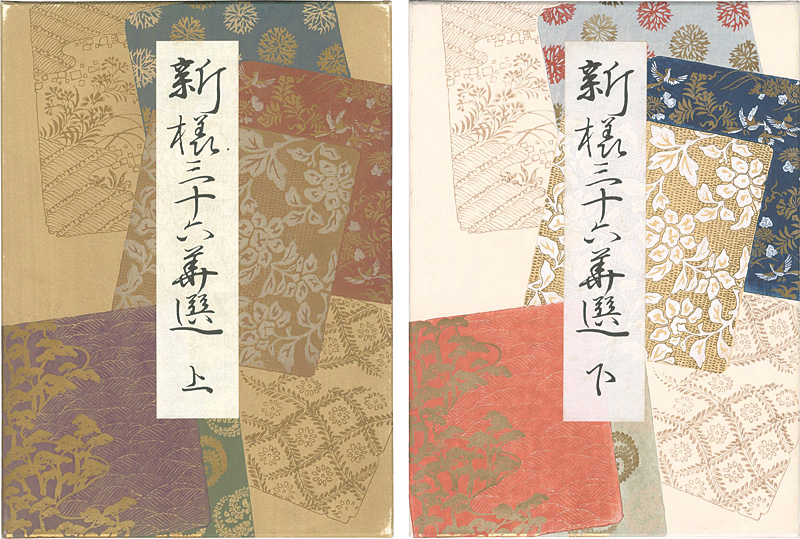 新様三十六華選 上
新様三十六華選 下